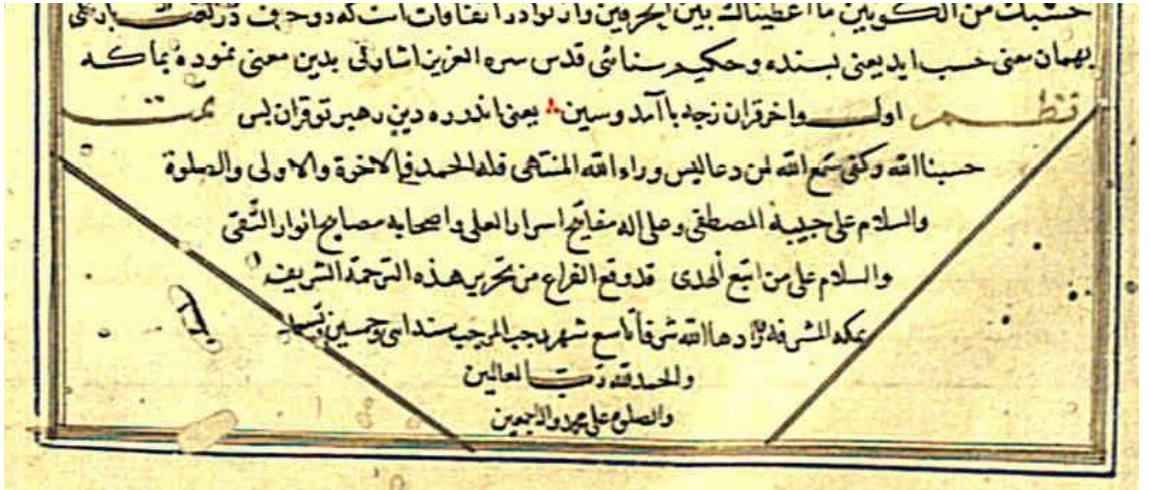 حسبك من الكونين ما اعطيناك بين الحرفين واز نوادر اتفاقات است که دو حرف در لغت
بهمان معنی حسب اید یعنی بسنده و حکیم سنائی قدس سره العزیز اشارتی بدین معنی نموده بما که
نظم اول و اخر قران زچه با آمد و سین یعنی اندر ره دین رهبر تو قران بس تمت
حسبنا الله وکفی سمع الله لمن دعا لیس وراء الله المنتهی فله الحمد فی الاخرة والاولی والصلوة
والسلام علی حبیبه المصطفی وعلی اله مفاتیح اسرار العلی واصحابه مصابیح انوار التقی
والسلام علی من اتبع الهدی قد وقع الفراغ من تحریر هذه الترجمة الشریفه
بمکه المشرفه زادها الله شرفا تاسع شهر رجب المرجب سنه اثنی وخمسین
والحمد لله رب العالمین
والصلوة علی محمد واله اجمعین